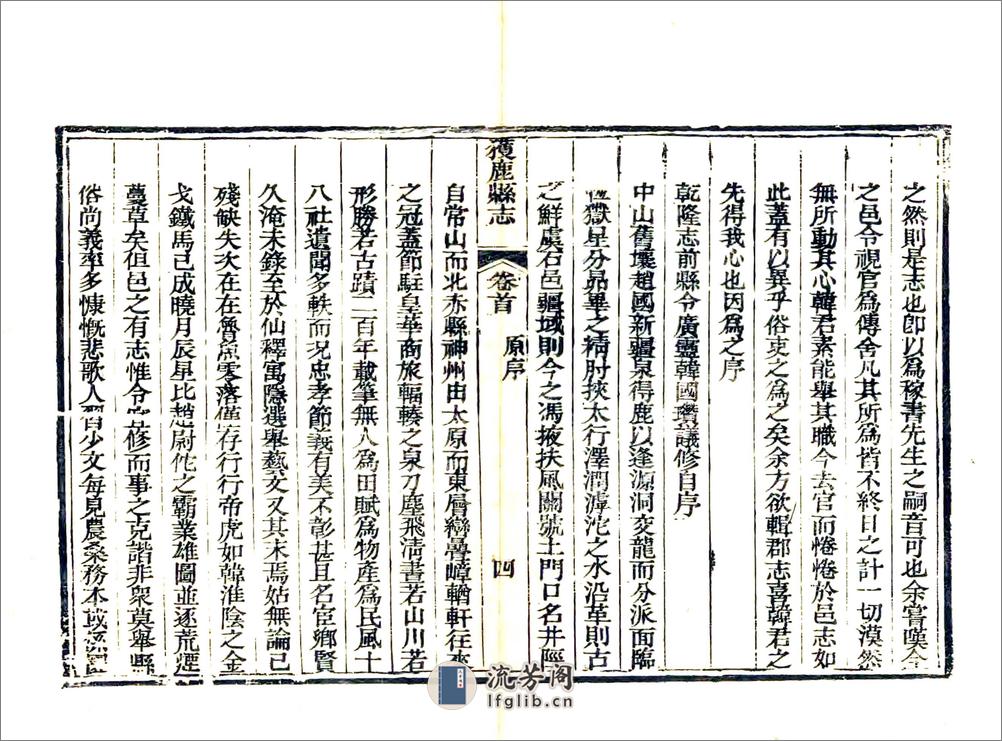 之然則是志也卽以爲稼書先生之嗣音可也余嘗嘆今
之邑令視官爲傳舍凡其所爲皆不終日之計一切漠然
無所動其心韓君素能舉其職今去官而惓惓於邑志如
此蓋有以異乎俗吏之爲之矣余方欲輯郡志喜韓君之
先得我心也因爲之序
乾隆志前縣令廣靈韓國瓚議修自序
中山舊壤趙國新疆泉得鹿以逢源洞交龍而分派面臨
嶽星分昴畢之精肘挾太行澤潤滹沱之水沿革則古
之鮮虞石邑疆域則今之馮掖扶風關號土門口名井陘
獲鹿縣志
卷首
原序
四
自常山而北赤縣神州由太原而東層巒疊嶂輶軒往來
之冠蓋節駐皇華商旅輻輳之泉刀塵飛清晝若山川若
形勝若古蹟二百年載筆無人爲田賦爲物產爲民風十
八社遺聞多軼而況忠孝節義有美不彰甚且名宦鄉賢
久淹未錄至於仙釋寓隱選舉藝文又其末焉姑無論已
殘缺失次在在魯魚零落僅存行行帝虎如韓淮陰之金
戈鐵馬已成曉月辰星比趙尉佗之霸業雄圖並逐荒煙
蔓草矣但邑之有志惟令修而事之克諧非衆莫舉縣
俗尚義率多慷慨悲歌人少文每見農桑務本或
流芳阁
lfglib.cn